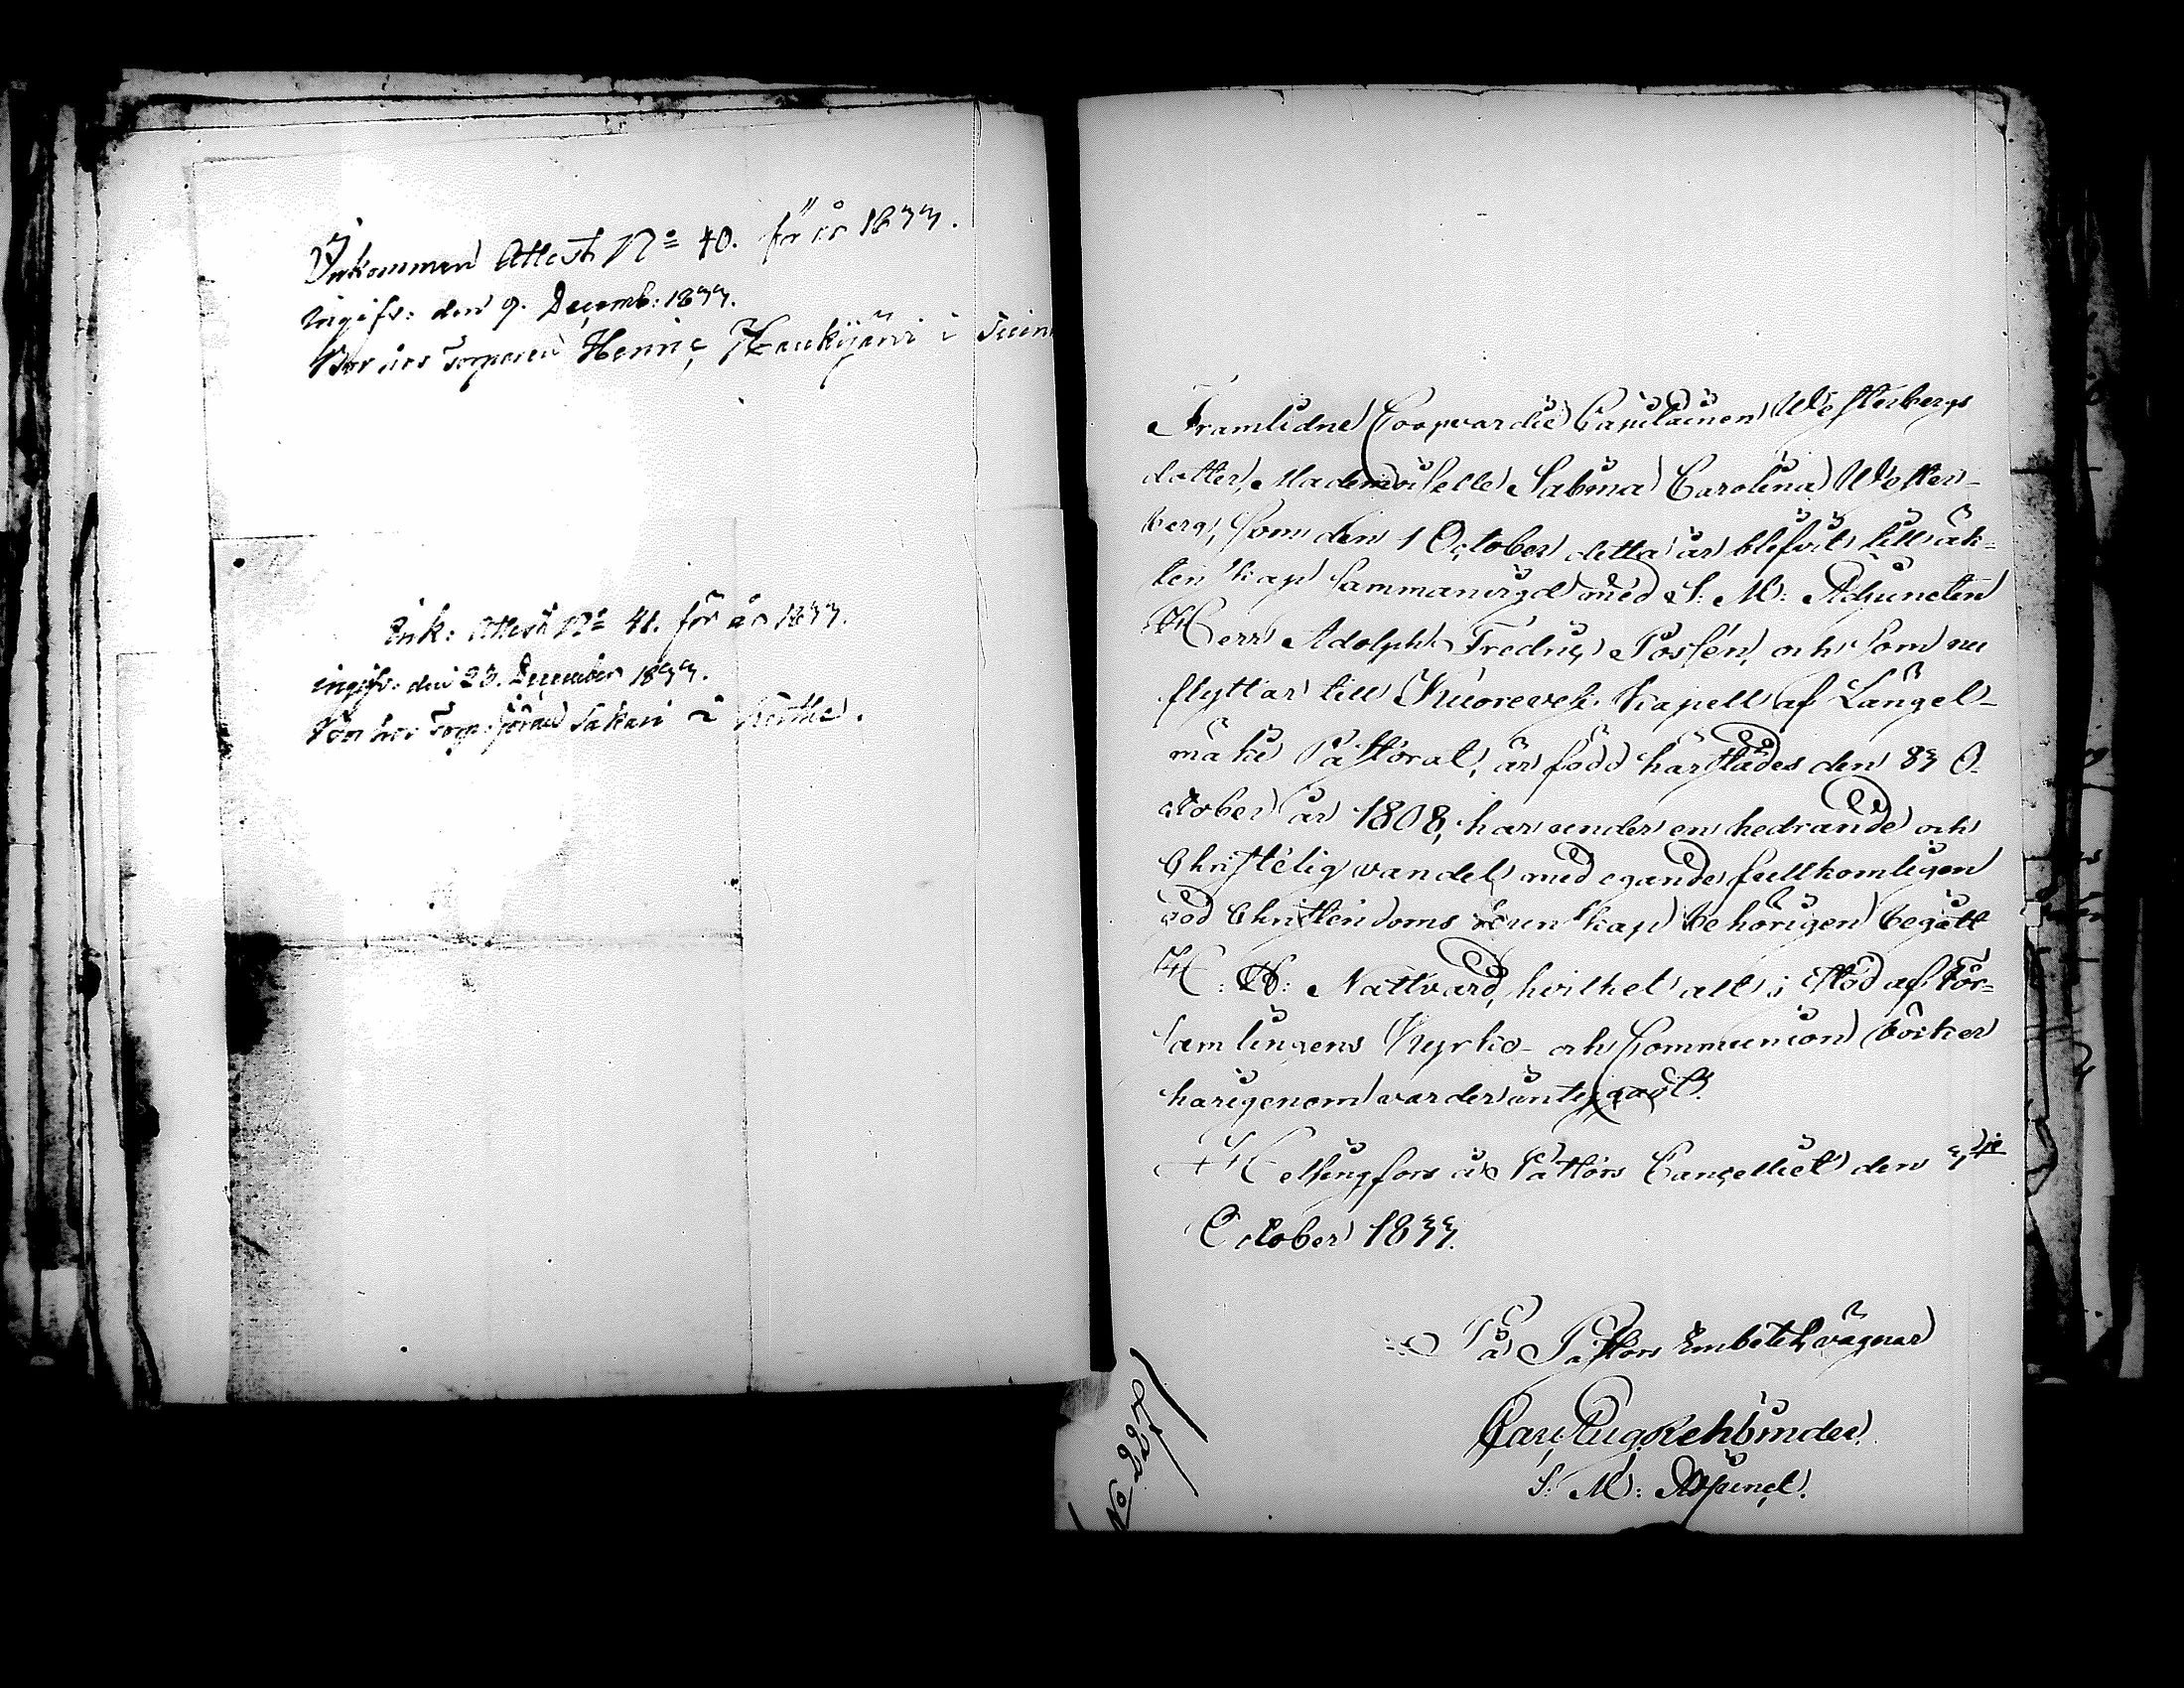 Inkommen Attest No 40. för år 1833.
ingifv: den 9. Decemb: 1833.
Bor hos Torparen Henric Haukijärvi i
Ink: Attest No 41. för år 1833.
ingifv: den 23. December 1833.
Bor hos Torp: Johan Sakari i
Framlidne Coopvardie Capitainen Westerbergs
dotter, Mademoiselle Sabina Carolina Wester-
berg, som den 1 October detta år blifvit till äk-
tenskap sammanvigd med S: M: Adjuncten
Herr Adolph Fredric Possén, och som nu
flyttar till Kuorevesi Kapell af Längel-
mäki Pastorat, är född härstädes den 83 O-
ctober år 1808, har under en hedrande och
Christelig vandel med egande fullkomligen
god Christendoms kunskap behörigen begått
H: H: Nattvard, hvilket alt i stöd af För-
samlingens Kyrko- och Communion böcker
härigenom varder intygadt.
Helsingfors å Pastors Cancelliet den 3die
October 1833.
På Pastors Embetets vägnar
Carl Aug. Rehbinder.
S: M: Adjunct.
No 227